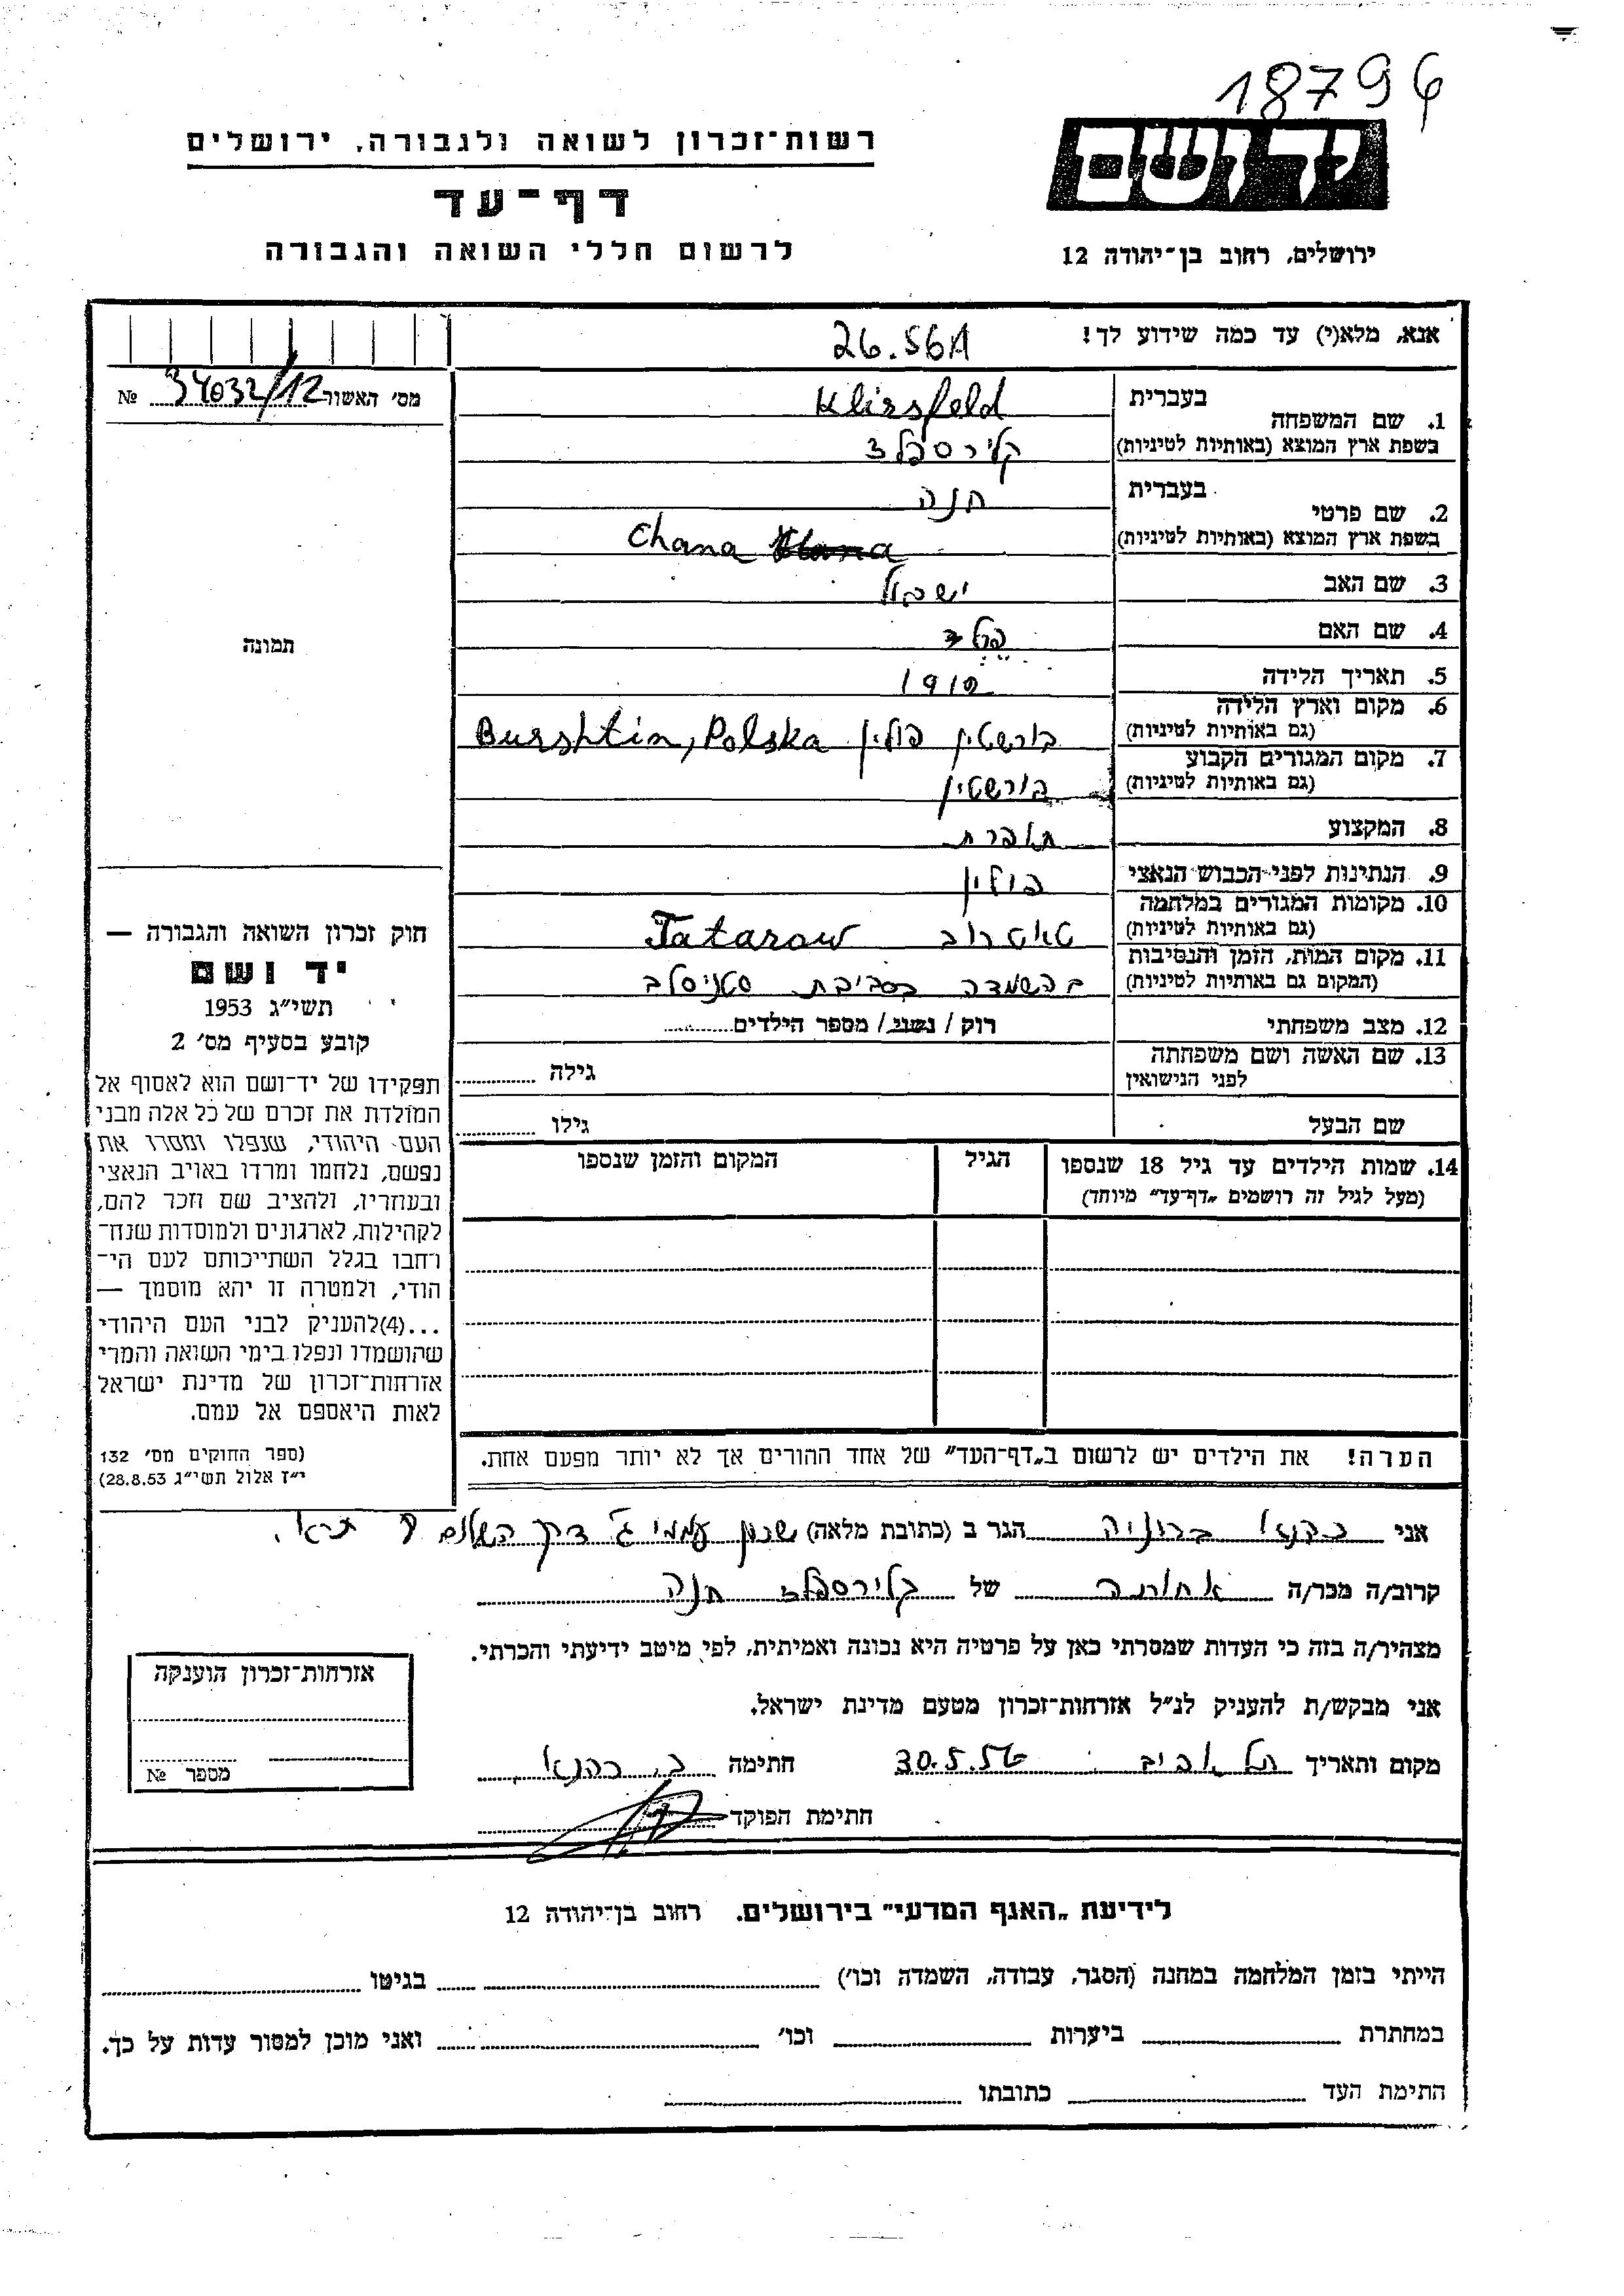 18794
ידושם
רשות־זכרון לשואה ולגבורה, ירושלים
דף־עד
לרשום חללי השואה והגבורה
ירושלים, רחוב בן־יהודה 12
אנא, מלא(י) עד כמה שידוע לך!
26.561
מס׳ האשור 34032/12 №
1. שם המשפחה
בעברית Klirsfeld
בשפת ארץ המוצא (באותיות לטיניות) קלירספלד
2. שם פרטי
בעברית חנה
בשפת ארץ המוצא (באותיות לטיניות) Chana
3. שם האב
4. שם האם
5. תאריך הלידה 1910
6. מקום וארץ הלידה
(גם באותיות לטיניות) בורשטין פולין Burshtin, Polska
7. מקום המגורים הקבוע
(גם באותיות לטיניות) בורשטין
8. המקצוע תופרת
9. הנתינות לפני הכבוש הנאצי פולין
10. מקומות המגורים במלחמה
(גם באותיות לטיניות) טאטרוב Tatarow
11. מקום המות, הזמן והנסיבות
(המקום גם באותיות לטיניות) בהשמדה בסביבת סטניסלב
12. מצב משפחתי רוק / נשוי / מספר הילדים
13. שם האשה ושם משפחתה
לפני הנישואין גילה
שם הבעל גילו
14. שמות הילדים עד גיל 18 שנספו הגיל המקום והזמן שנספו
(מעל לגיל זה רושמים „דף־עד״ מיוחד)
הערה! את הילדים יש לרשום ב„דף־העד״ של אחד ההורים אך לא יותר מפעם אחת.
תמונה
חוק זכרון השואה והגבורה —
יד ושם
תשי״ג 1953
קובע בסעיף מס׳ 2
תפקידו של יד־ושם הוא לאסוף אל
המולדת את זכרם של כל אלה מבני
העם היהודי, שנפלו ומסרו את
נפשם, נלחמו ומרדו באויב הנאצי
ובעוזריו, ולהציב שם וזכר להם,
לקהילות, לארגונים ולמוסדות שנח־
רחבו בגלל השתייכותם לעם הי־
הודי, ולמטרה זו יהא מוסמך —
...(4)להעניק לבני העם היהודי
שהושמדו ונפלו בימי השואה והמרי
אזרחות־זכרון של מדינת ישראל
לאות היאספם אל עמם.
(ספר החוקים מס׳ 132
י״ז אלול תשי״ג 28.8.53)
אני כהנא ברוניה הגר ב (כתובת מלאה) שכון עממי ג׳ דרך השלום
קרוב/ה מכר/ה אחותה של קלירספלד חנה
מצהיר/ה בזה כי העדות שמסרתי כאן על פרטיה היא נכונה ואמיתית, לפי מיטב ידיעתי והכרתי.
אני מבקש/ת להעניק לנ״ל אזרחות־זכרון מטעם מדינת ישראל.
מקום ותאריך תל אביב 30.5.56 חתימה ב. כהנא
חתימת הפוקד
אזרחות־זכרון הוענקה
מספר №
לידיעת „האגף המדעי״ בירושלים. רחוב בן־יהודה 12
הייתי בזמן המלחמה במחנה (הסגר, עבודה, השמדה וכו׳) בגיטו
במחתרת ביערות וכו׳ ואני מוכן למסור עדות על כך.
התימת העד כתובתו